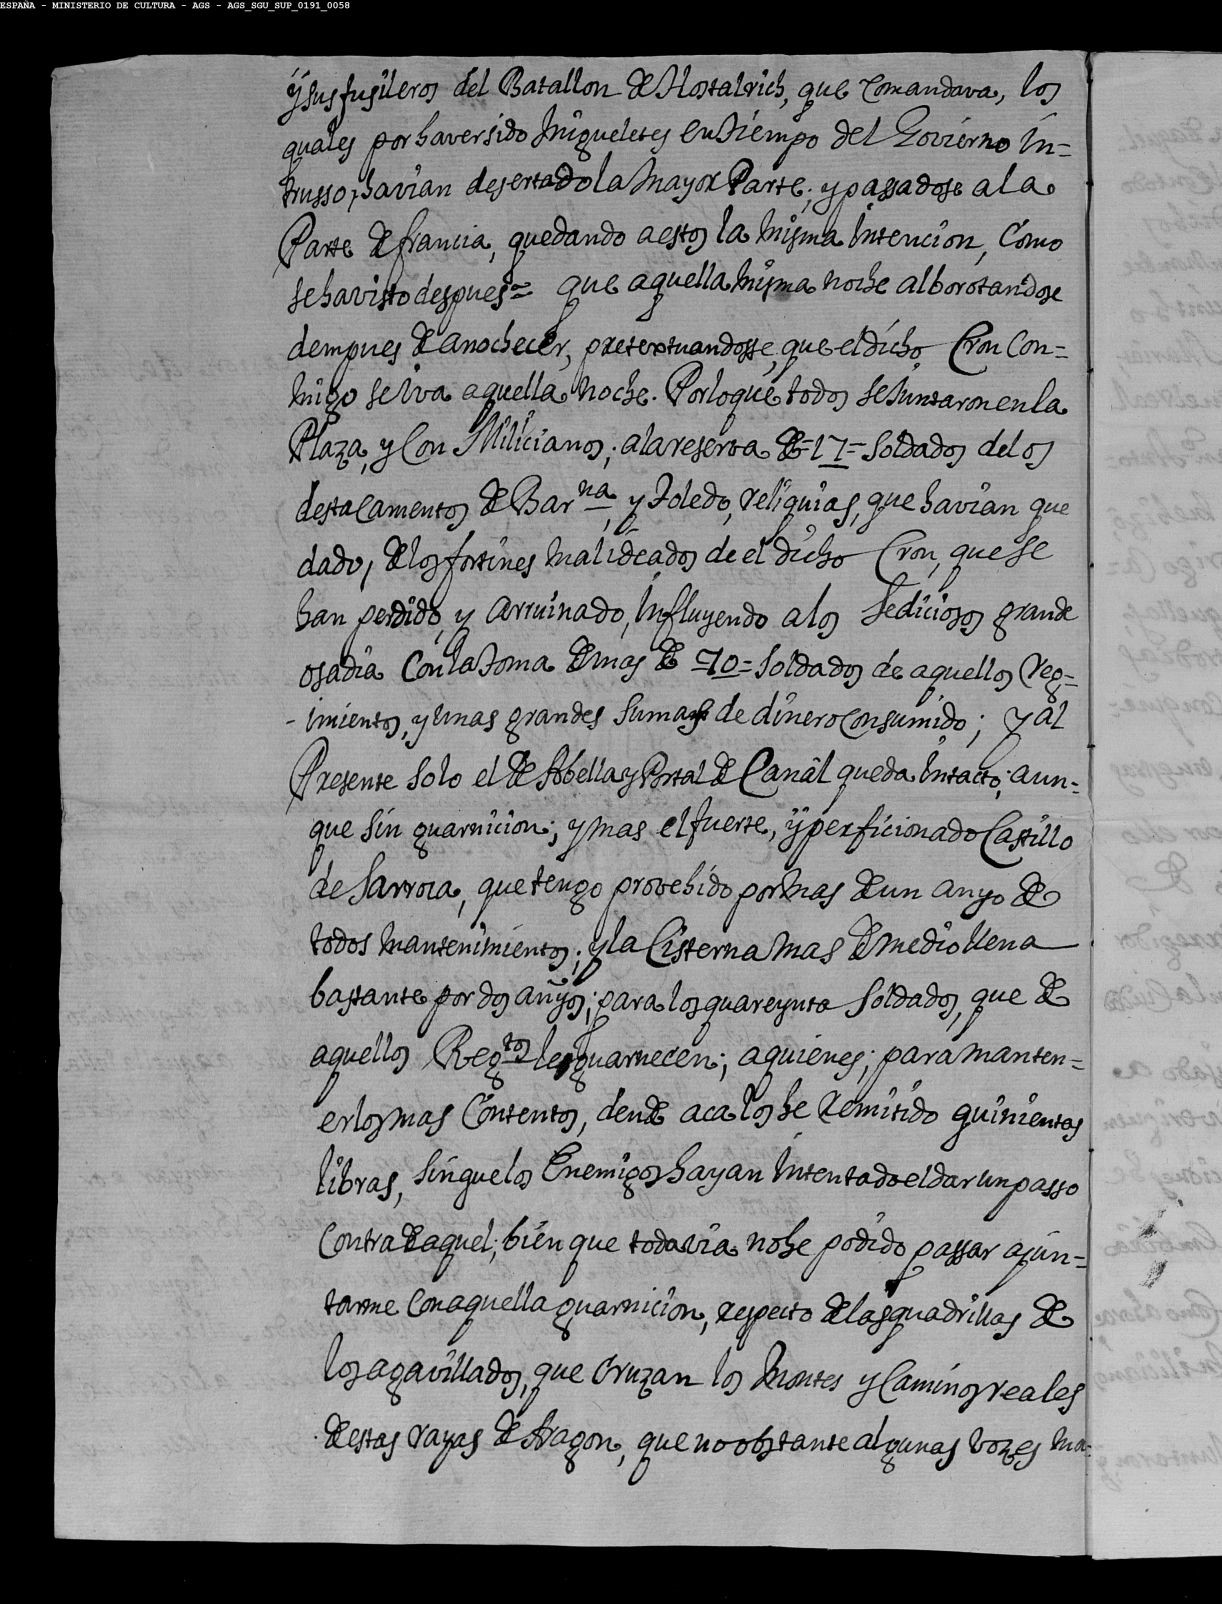 ESPAÑA - MINISTERIO DE CULTURA - AGS - AGS_SGU_SUP_0191_0058
ÿ sus fusileros del Batallon de Hostalrich, que comandava, los
quales por haver sido Migueletes en tiempo del Govierno in=
trusso, havian desertado la mayor Parte; y passadose a la
Parte de francia, quedando a estos la misma intencion, como
se ha visto despues= que aquella misma noche alborotandose
dempues de anochecer, pretextuandosse, que el dicho Cron con=
migo se iva aquella noche. Por lo que todos se juntaron en la
Plaza, y con Milicianos; a la reserva de =17= soldados de los
destacamentos de Barna, y Toledo, reliquias, que havian que
dado, de los fortines malideados de el dicho Cron, que se
han perdido, y arruinado, influyendo a los sediciosos grande
osadia con la toma de mas de =70= soldados de aquellos Reg=
- imientos, y unas grandes sumas de dinero consumido; y al
Presente solo el de Abella y Portal de Canal queda intacto; aun=
que sin guarnicion; y mas el fuerte, ÿ perficionado Castillo
de Sarroca, que tengo provehido por mas de un anyo de
todos mantenimientos; y la Cisterna mas de medio llena
bastante por dos añyos; para los quareynta soldados, que de
aquellos Regtos le guarnecen; a quienes; para manten=
erlos mas contentos, dende aca los he remitido quinientas
libras, sin que los Enemigos hayan intentado el dar un passo
contra de aquel; bien que todavia no he podido passar a jun=
tarme con aquella guarnicion, respecto de las quadrillas de
los agavillados, que cruzan los montes y caminos reales
destas rayas de Aragon, que no obstante algunas vozes ma-